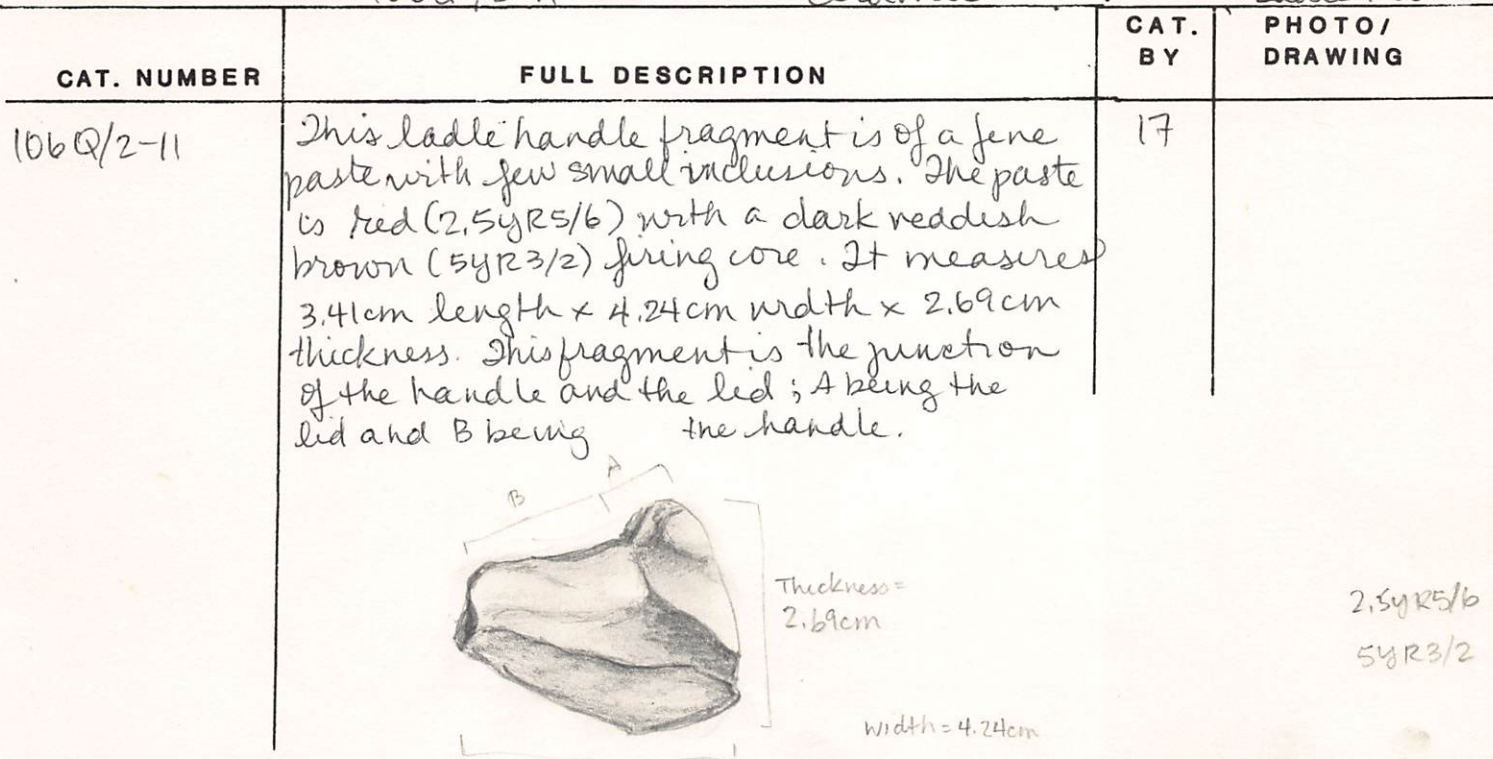 CAT. NUMBER
FULL DESCRIPTION
CAT. BY
PHOTO/ DRAWING
106Q/2-11
17
This ladle handle fragment is of a fine
paste with few small inclusions. The paste
is red (2.5YR5/6) with a dark reddish
brown (5YR3/2) firing core. It measures
3.41cm length x 4.24cm width x 2.69cm
thickness. This fragment is the junction
of the handle and the lid; A being the
lid and B being the handle.
A
B
Thickness=
2.69cm
2.5YR5/6
5YR3/2
width=4.24cm